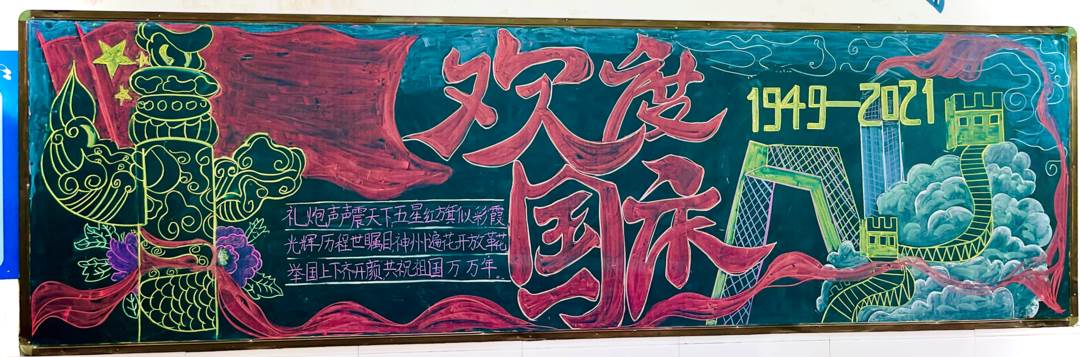 欢度
国庆
1949—2021
礼炮声声震天下五星红旗似彩霞
光辉历程世瞩目神州遍花开放革花
举国上下齐开颜共祝祖国万万年.